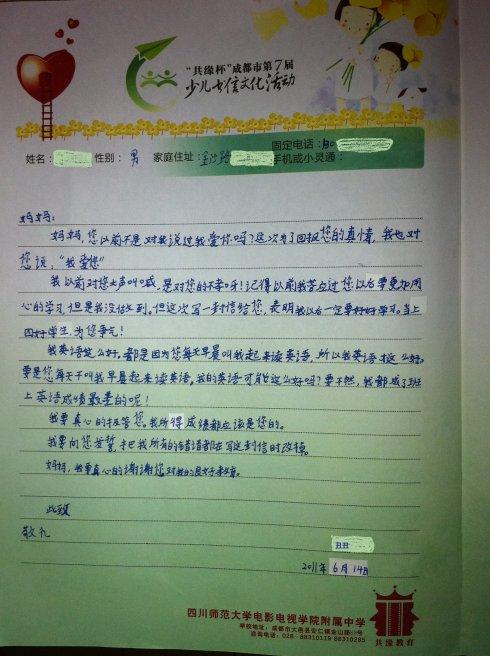 “共缘杯”成都市第7届
少儿书信文化活动
固定电话：
姓名： 性别：男 家庭住址： 手机或小灵通：
妈妈：
妈妈，您以前不是对我说过我爱你吗？这次为了回报您的真情，我也对
您说，“我爱您”
我以前对您大声叫喊，是对您的不孝呀！记得以前我答应过您以后要更加用
心的学习，但是我没做到。但这次写一封信给您，表明我以后一定要好好学习。当上
四好学生为您争气！
我英语这么好，都是因为您每天早晨叫我起来读英语，所以我英语才这么好。
要是您每天不叫我早晨起来读英语，我的英语可能这么好吗？要不然，我都成了班
上英语成绩最差的呢！
我要真心的报答您，我所得成绩都应该是您的。
我要向您发誓，把我所有的错误都在写这封信时改掉。
妈妈，我要真心的谢谢您对我的
此致
敬礼
丑丑
2011年6月14日
四川师范大学电影电视学院附属中学
学校地址：成都市大邑县安仁镇金山路
咨询电话：028-88310119 88310285
共缘教育